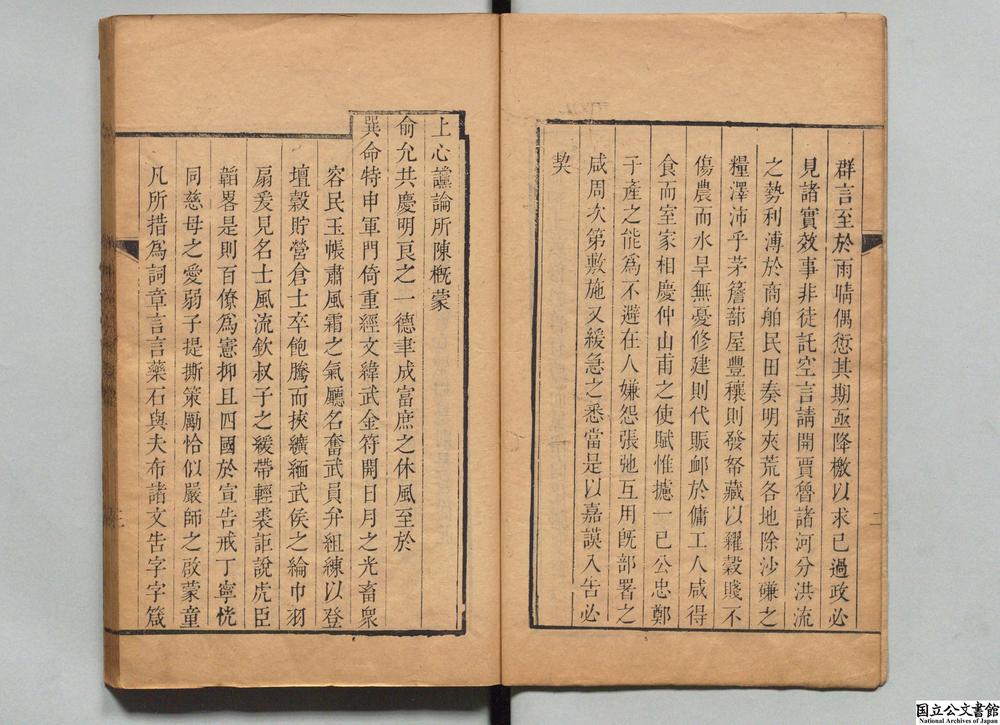 群言至於雨晴偶愆其期亟降檄以求已過政必
見諸實效事非徒託空言請開賈魯諸河分洪流
之勢利溥於商舶民田奏明夾荒各地除沙磏之
糧澤沛乎茅簷蔀屋豐穰則發帑藏以糴穀賤不
傷農而水旱無憂修建則代賑衈於傭工人咸得
食而室家相慶仲山甫之使賦惟攄一已公忠鄭
子產之能為不避在人嫌怨張弛互用既部署之
咸周次第敷施又緩急之悉當是以嘉謨入告必
契
上心讜論所陳概蒙
俞允共慶明良之一德聿成富庶之休風至於
巽命特申軍門倚重經文緯武金符開日月之光畜衆
容民玉帳肅風霜之氣廳名奮武員弁組練以登
壇穀貯營倉士卒飽騰而挾纊緬武侯之綸巾羽
扇爰見名士風流欽叔子之緩帶輕裘詎說虎臣
韜畧是則百僚為憲抑且四國於宣告戒丁寧恍
同慈母之愛弱子提撕策勵恰似嚴師之啟蒙童
凡所措為詞章言言藥石與夫布諸文告字字箴
二
三
国立公文書館
National Archives of Japan